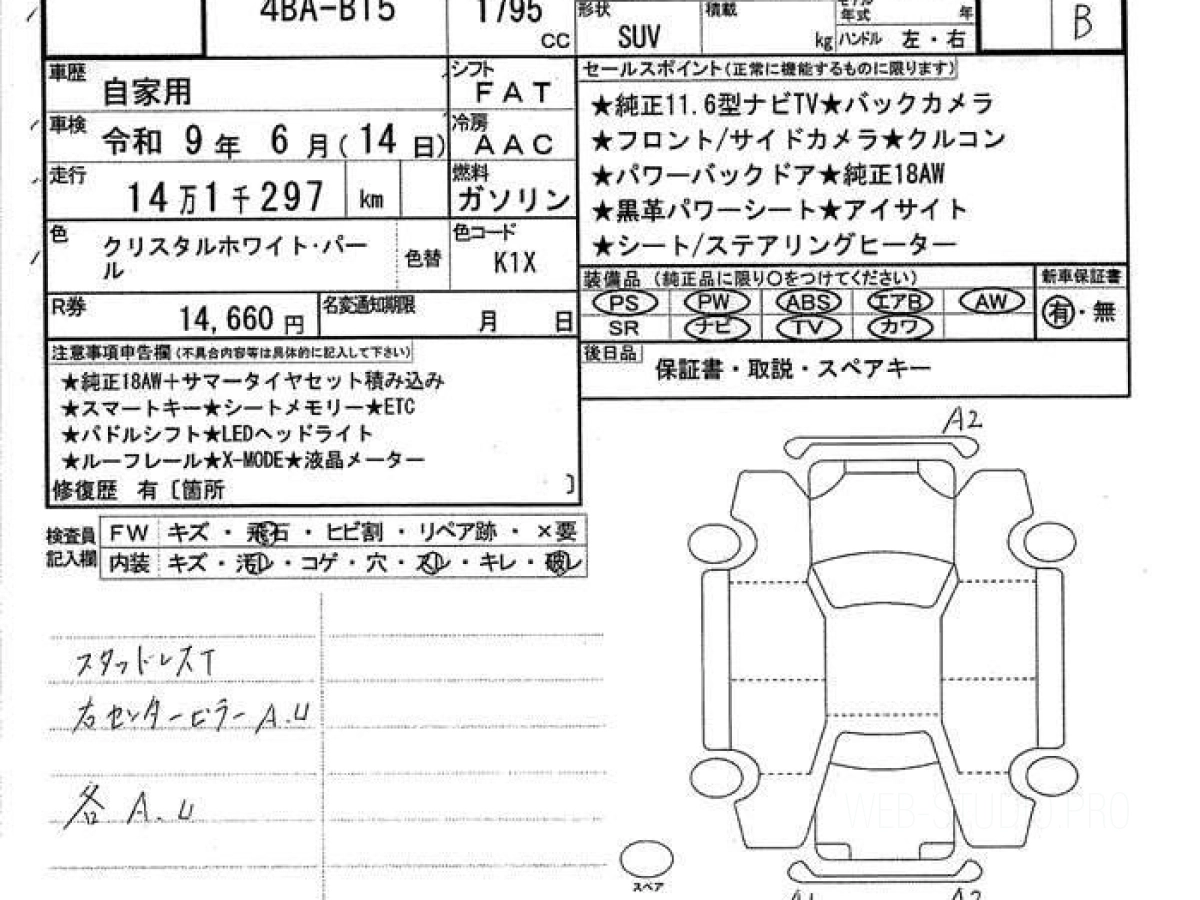 4BA-BT5
1795
cc
形状
SUV
積載
kg
年式
年
ハンドル 左・右
B
車歴
自家用
シフト
FAT
車検
令和 9年 6月(14日)
冷房
AAC
走行
14万1千297 km
燃料
ガソリン
色
クリスタルホワイト・パール
色替
色コード
K1X
R券
14,660 円
名変通知期限
月 日
セールスポイント(正常に機能するものに限ります)
★純正11.6型ナビTV★バックカメラ
★フロント/サイドカメラ★クルコン
★パワーバックドア★純正18AW
★黒革パワーシート★アイサイト
★シート/ステアリングヒーター
装備品 (純正品に限り○をつけてください)
新車保証書
PS PW ABS エアB AW
SR ナビ TV カワ
有・無
後日品
保証書・取説・スペアキー
注意事項申告欄(不具合内容等は具体的に記入して下さい)
★純正18AW+サマータイヤセット積み込み
★スマートキー★シートメモリー★ETC
★パドルシフト★LEDヘッドライト
★ルーフレール★X-MODE★液晶メーター
修復歴 有〔箇所 〕
検査員
記入欄
FW キズ・飛石・ヒビ割・リペア跡・×要
内装 キズ・汚レ・コゲ・穴・スレ・キレ・破レ
スタッドレスT
右センターピラーA.U
各 A.U
A2
スペア
A1
A2
WEB-STUDIO.PRO